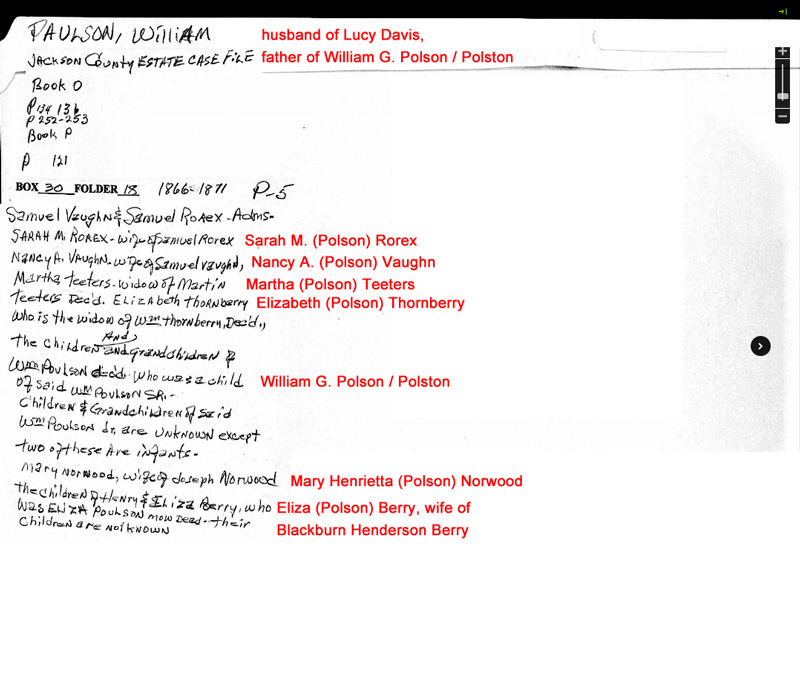 PAULSON, William husband of Lucy Davis,
JACKSON County ESTATE CASE FILE father of William G. Polson / Polston
Book O
P 134 136
P 252-253
Book P
P 121
BOX 30 FOLDER 18 1866-1871 P-5
Samuel Vaughn & Samuel Rorex - Adms-
SARAH M. ROREX - wife of Samuel Rorex Sarah M. (Polson) Rorex
Nancy A. Vaughn - wife of Samuel Vaughn, Nancy A. (Polson) Vaughn
Martha Teeters - widow of Martin Martha (Polson) Teeters
Teeters Dec'd. Elizabeth Thornberry Elizabeth (Polson) Thornberry
who is the widow of Wm Thornberry, Dec'd.,
And,
The Children and Grandchildren of
Wm Poulson decd. Who was a child William G. Polson / Polston
of said Wm Poulson SR.-
Children & Grandchildren of Said
Wm Poulson Jr. are UNKNOWN except
two of these Are infants-
Mary Norwood, wife of Joseph Norwood Mary Henrietta (Polson) Norwood
the Children of Henry & Eliza Berry, who Eliza (Polson) Berry, wife of
was Eliza Poulson now Dead - their Blackburn Henderson Berry
Children are not KNOWN